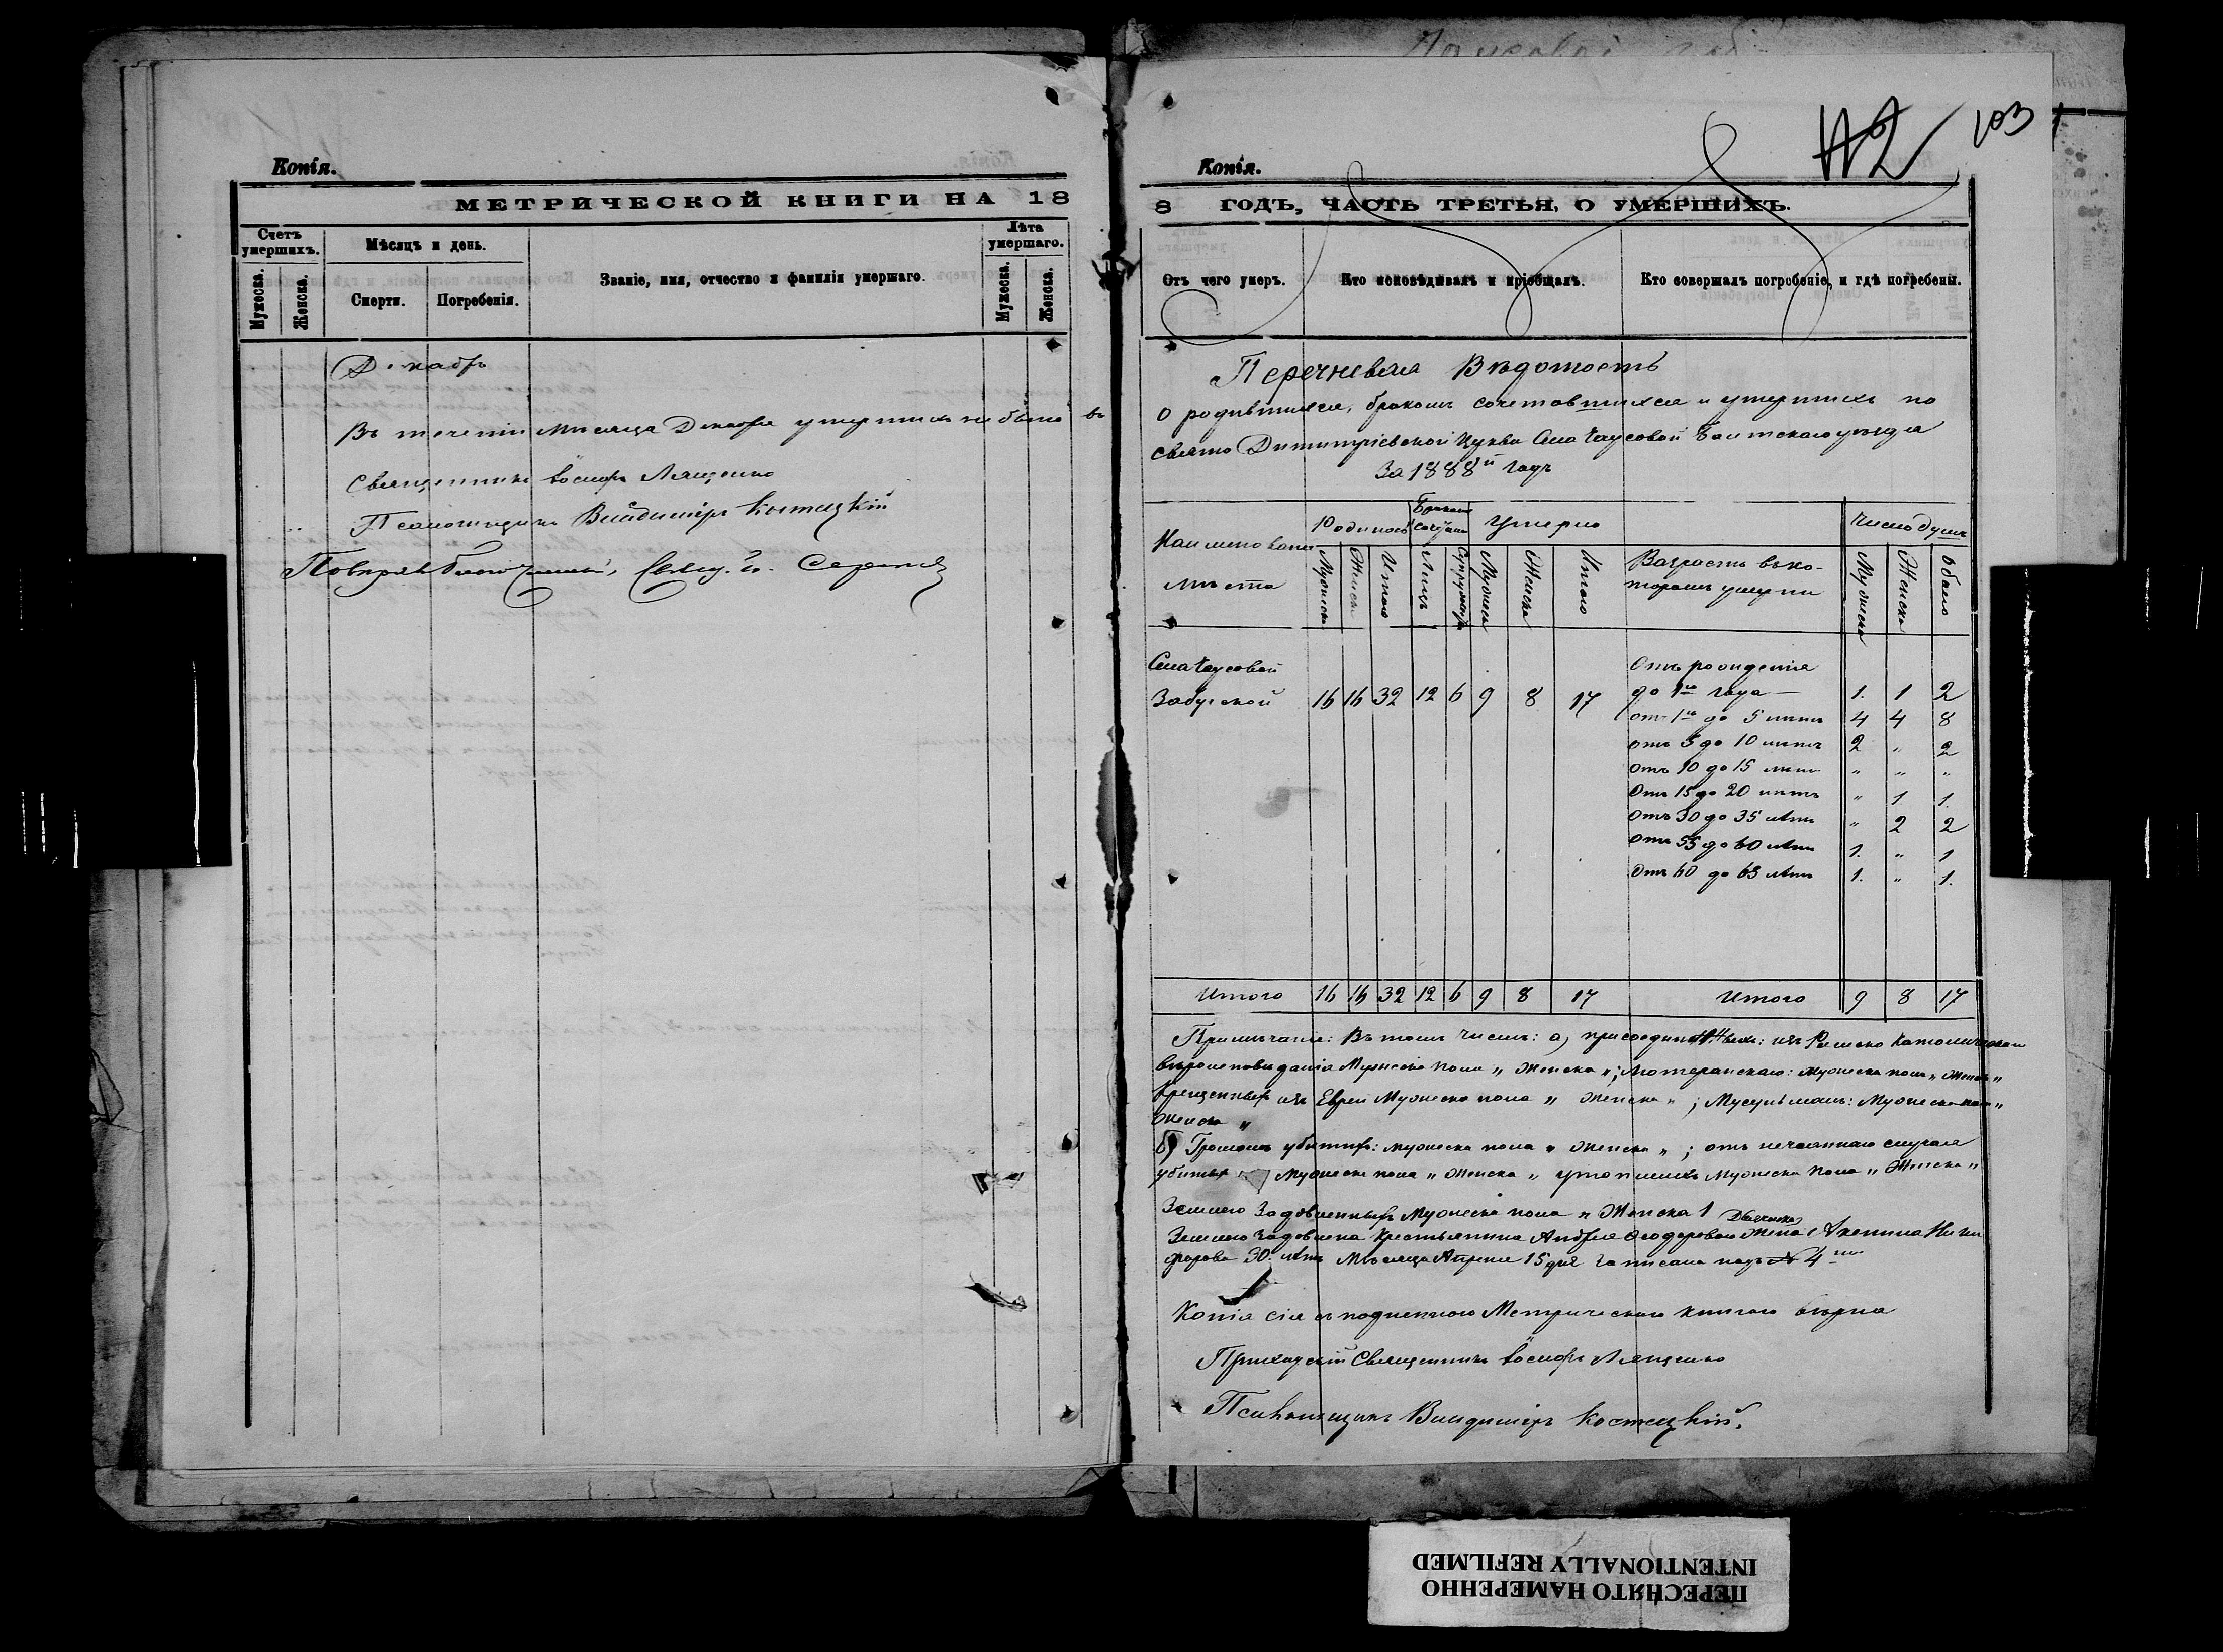 Копія.
МЕТРИЧЕСКОЙ КНИГИ НА 18
Счетъ умершихъ.
Мѣсяцъ и день.
Званіе, имя, отчество и фамилія умершаго.
Лѣта умершаго.
Мужеска.
Женска.
Смерти.
Погребенія.
Мужеска.
Женска.
Декабрь
Въ теченіи мѣсяца Декабря умершихъ не было
Священникъ Іосифъ Лященко
Псаломщикъ Владиміръ Костецкій
Копія.
112 103
8 ГОДЪ, ЧАСТЬ ТРЕТЬЯ, О УМЕРШИХЪ.
Отъ чего умеръ.
Кто исповѣдывалъ и пріобщалъ.
Кто совершалъ погребеніе, и гдѣ погребены.
Перечневая Вѣдомость
о родившихся, бракомъ сочетавшихся и умершихъ по
Свято Димитріевской Церкви Села Чаусовой Балтскаго уѣзда
За 1888й годъ
Наименованіе мѣста
Родилось
Бракомъ сочетаны
Умерло
Возрастъ въ которомъ умерли
Число душъ
Мужеска
Женска
Итого
Лицъ
Супружествъ
Мужеска
Женска
Итого
Мужеска
Женска
Обоего
Села Чаусовой
Забугской 16 16 32 12 6 9 8 17
Отъ рожденія
до 1го года — 1. 1 2
отъ 1го до 5 лѣтъ 4 4 8
отъ 5 до 10 лѣтъ 2 „ 2
отъ 10 до 15 лѣтъ „ „ „
Отъ 15 до 20 лѣтъ „ 1 1.
отъ 30 до 35 лѣтъ „ 2 2
отъ 55 до 60 лѣтъ 1. „ 1
Отъ 60 до 65 лѣтъ 1. „ 1.
Итого 16 16 32 12 6 9 8 17 Итого 9 8 17
Примѣчаніе: Въ томъ числѣ: а) присоединенныхъ: изъ Римско Католическаго
вѣроисповѣданія Мужеска пола „ Женска „; Лютеранскаго: Мужеска пола „ Женска „
крещенныхъ изъ Евреи Мужеска пола „ Женска „; Мусульманъ: Мужеска пола „
Женска „
б) Громомъ убитыхъ: мужеска пола „ Женска „; отъ нечаяннаго случая
убитыхъ Мужеска пола „ Женска „ утопшихъ Мужеска пола „ Женска „
Землею Задавленныхъ Мужеска пола „ Женска 1
Землею Задавлена крестьянина Андрея Ѳеодорова Жена Акилина Ники
форова 30. лѣтъ Мѣсяца Апреля 15 дня Записана подъ № 4
Копія сія съ подлинною Метрическою книгою вѣрна
Приходскій Священникъ Іосифъ Лященко
Псаломщикъ Владиміръ Костецкій.
ПЕРЕСНЯТО НАМЕРЕННО
INTENTIONALLY REFILMED